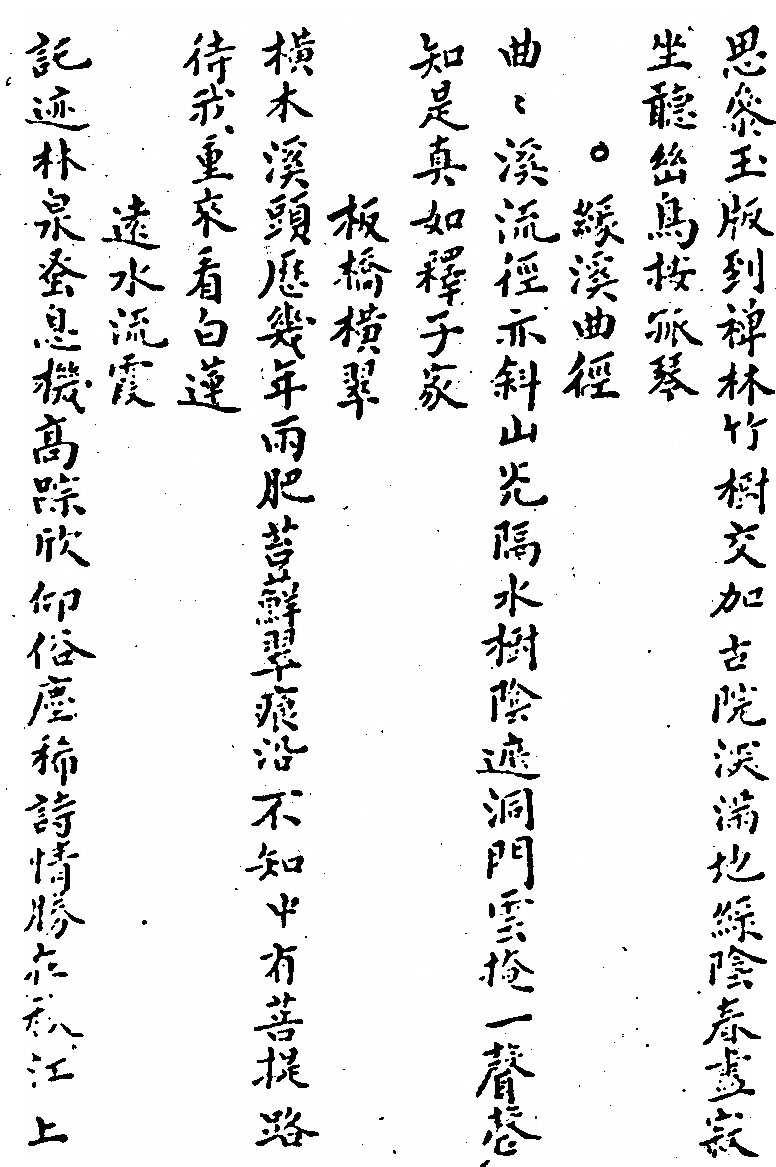 思參玉版到禅林竹樹交加古院深滿地綠陰春晝寂
坐聽幽鳥按孤琴
○緣溪曲徑
曲〻溪流徑亦斜山光隔水樹陰遮洞門雲掩一聲磬
知是真如釋子家
板橋橫翠
橫木溪頭歷幾年雨肥苔蘚翠痕沿不知中有菩提路
待我重來看白蓮
遠水流霞
託迹林泉蚤息機高踪欣仰俗塵稀詩情勝在秋江上